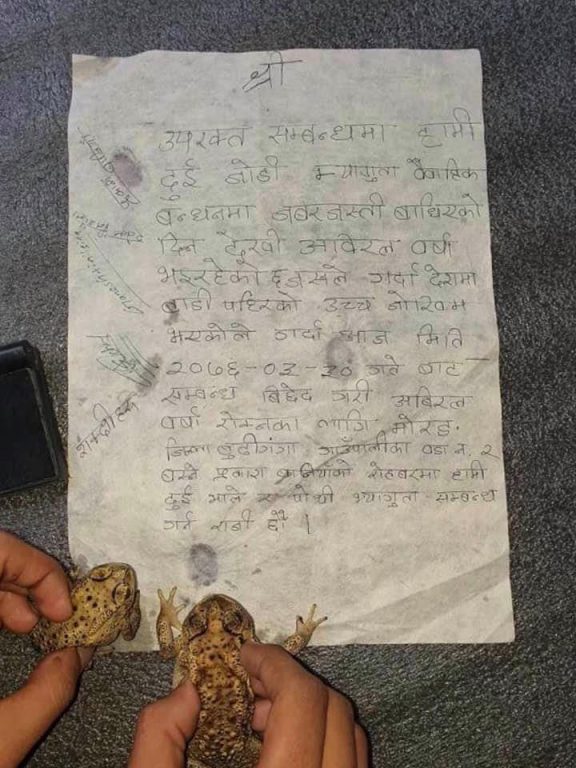 श्री
उपरक्त सम्बन्धमा हामी
दुई जोडी भ्यागुता वैवाहिक
बन्धनमा जबरजस्ती बाधिएको
दिन देखी अविरल वर्षा
भइरहेको हुनाले गर्दा देशमा
बाडी पहिरको उच्च जोखिम
भएकोले गर्दा आज मिति
२०७६-०३-३० गते बाट
सम्बन्ध बिछेद गरी अबिरल
वर्षा रोक्नका लागि मोरङ
जिल्ला बुढीगंगा गाउँपालीका वडा न. २
बस्ने प्रकाश को रोहबरमा हामी
दुई भाले र पोथी भ्यागुता सम्बन्ध
गर्न राजी छौ ।